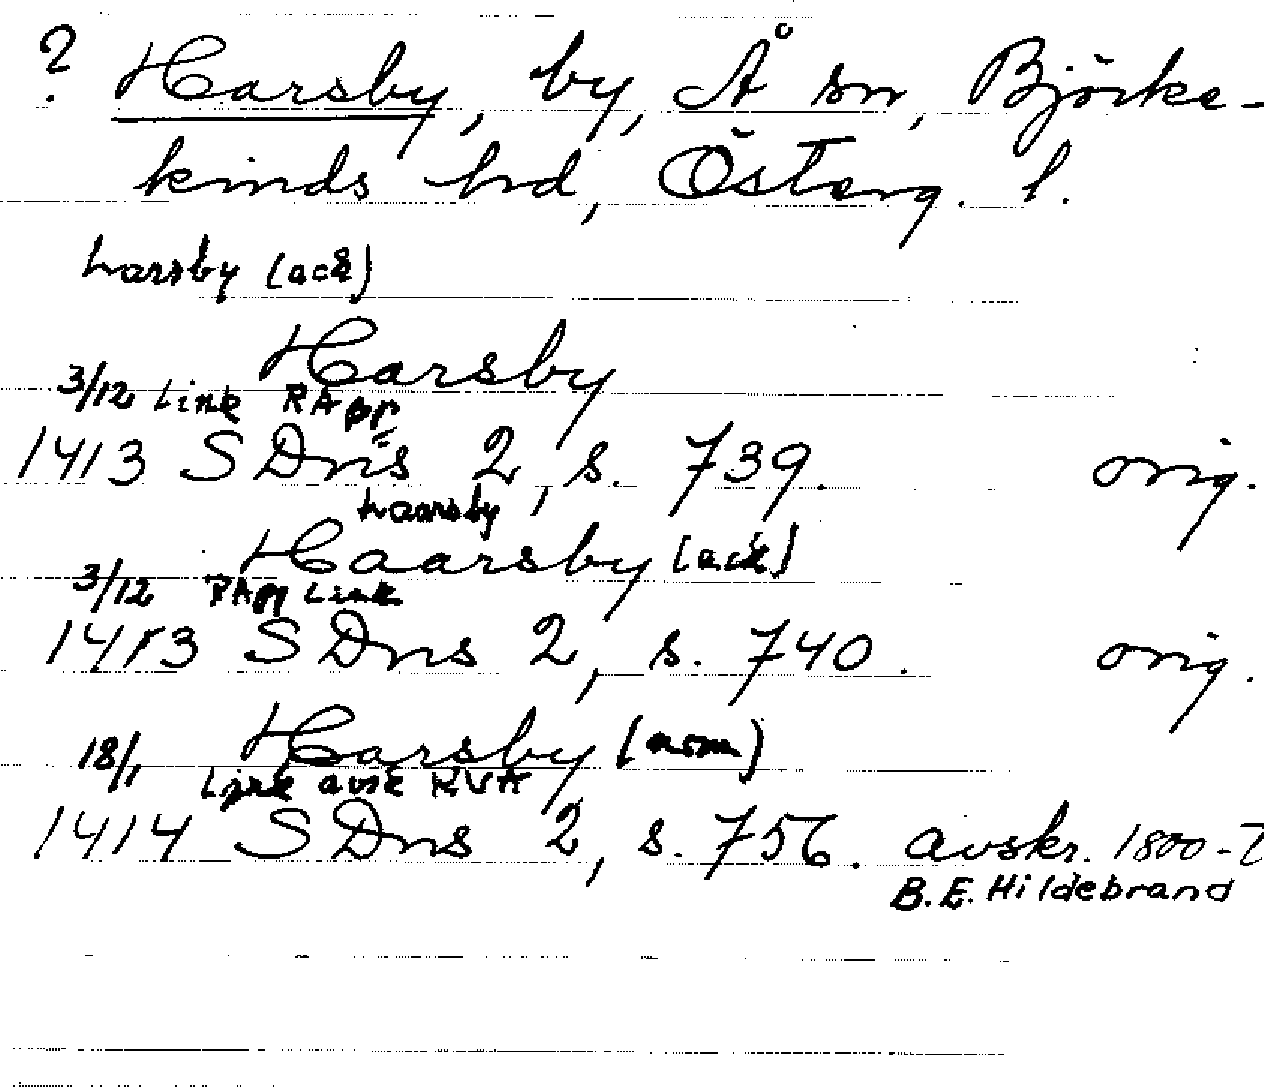 ? Harsby, by, Å sn, Björke-
kinds hd, Österg. l.
harsby (ack)
Harsby
3/12 Link RApp
1413 SDns 2, s. 739. orig.
haarsby
Haarsby (ack)
3/12 RApp Link
1413 SDns 2, s. 740. orig.
Harsby (nom)
18/1 avsk
1414 SDns 2, s. 756. avskr. 1800-T
B.E. Hildebrand